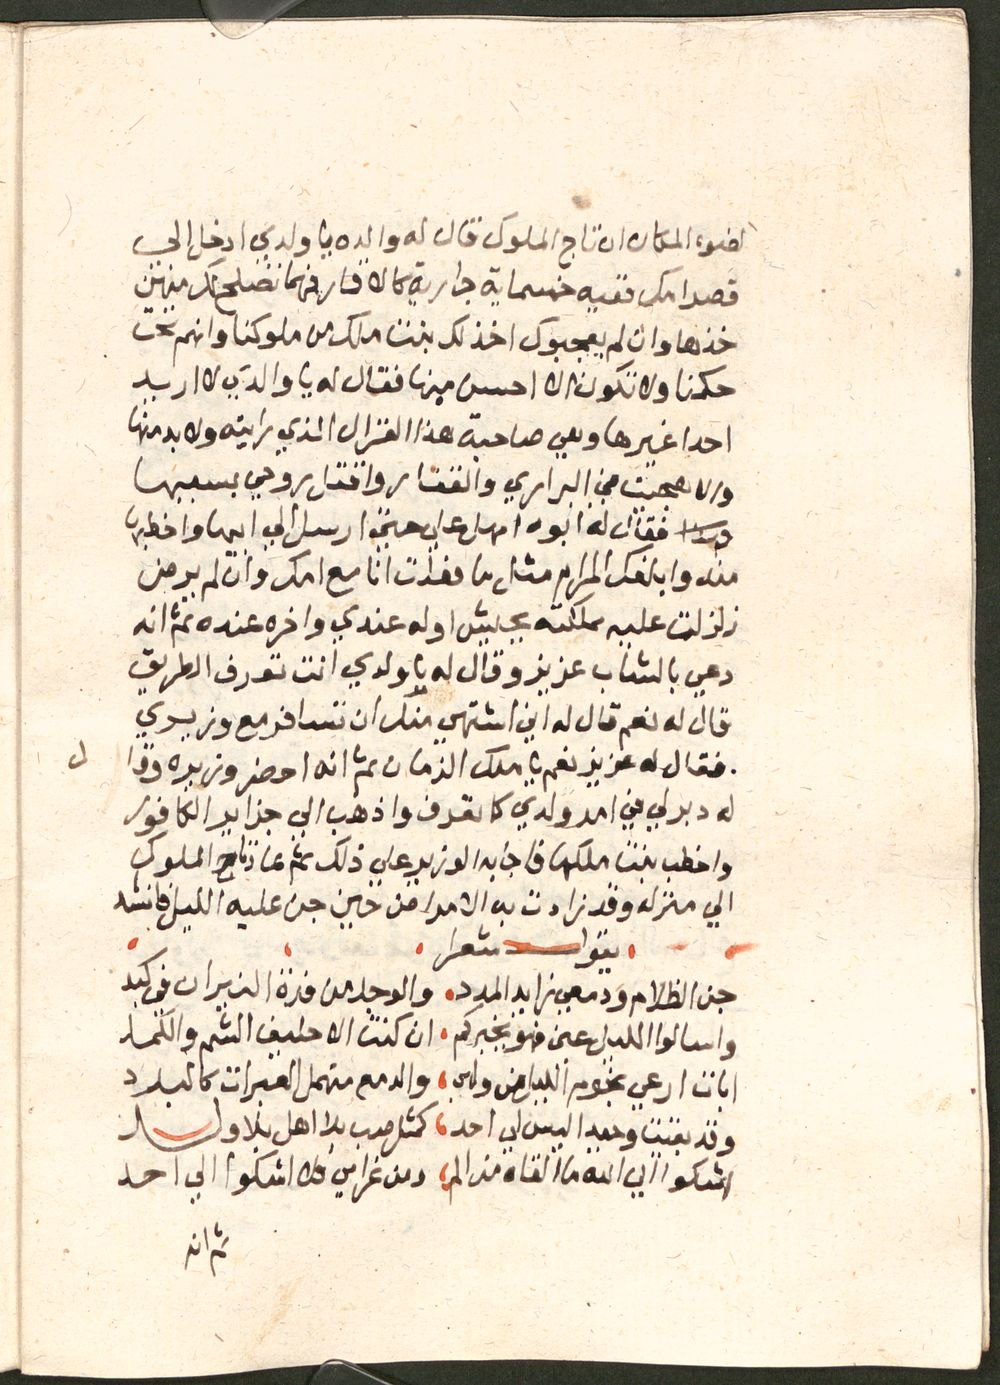 لضوء المكان ان تاج الملوك قال له والده يا ولدي ادخل الى
قصر امك ففيه خمسماية جارية كالاقمار فهما تصلح لك منهن
خذها وان لم يعجبوك اخذ لك بنت ملك من ملوكنا وانهم تحت
حكمنا ولا تكون الا احسن منها فقال له يا والدي لا اريد
احدا غيرها وهي صاحبة هذا الغزال الذي رايته ولا بد منها
والا هجيت في البراري والقفار واقتل روحي بسببها
فقال له ابوه امهل علي حتى ارسل الي ابيها واخطبها
منه وابلغك المرام مثل ما فعلت انا مع امك وان لم يرض
زلزلت عليه مملكته بجيش اوله عندي واخره عنده ثم انه
دعي بالشاب عزيز وقال له يا ولدي انت تعرف الطريق
قال له نعم قال له اني اشتهي منك ان تسافر مع وزيري
فقال له عزيز نعم يا ملك الزمان ثم انه احضر وزيره وقا ل
له دبر لي في امر ولدي كما تعرف واذهب الي جزاير الكافور
واخطب بنت ملكها فاجابه الوزير علي ذلك ثم عاد تاج الملوك
الي منزله وقد زادت به الامراض حين جن عليه الليل فانشد
يقول شعرا
جن الظلام ودمعي زايد المدد والوجد من فرة النيران في كبد
واسالوا الليل عني فهو يخبركم ان كنت الا حليف الهم والكمد
ابات ارعي نجوم الليل من ولهي والدمع منهمل العبرات كالبرد
وقد بقيت وحيدا ليس لي احد كمثل صب بلا اهل بلا ولد
اشكوا الي الله ما القاه من الم ومن غرامي فلا اشكوا الي احد
ثم انه